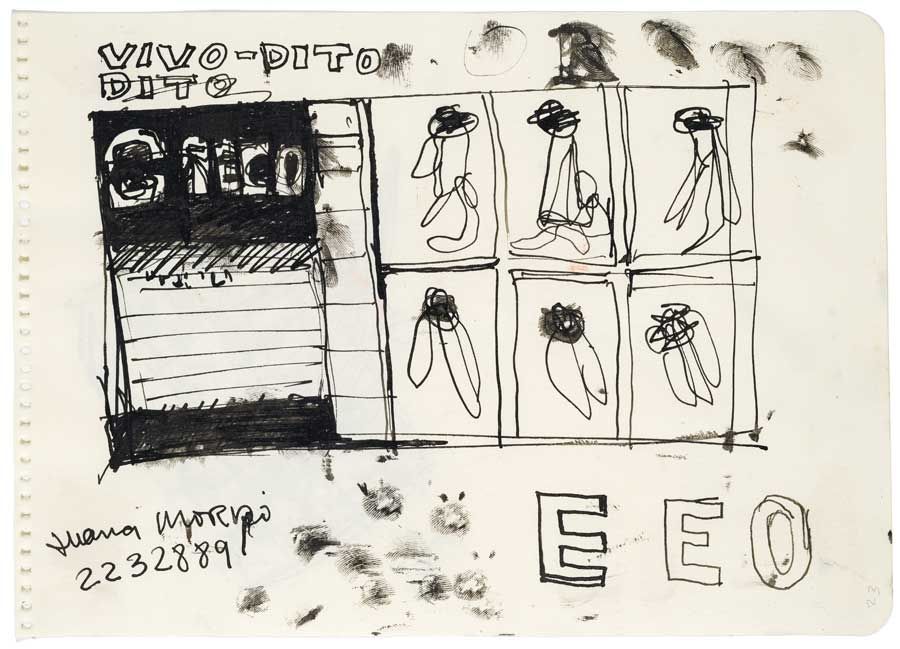 VIVO-DITO
DITO
GRECO
Juana
2232889
E E O
23